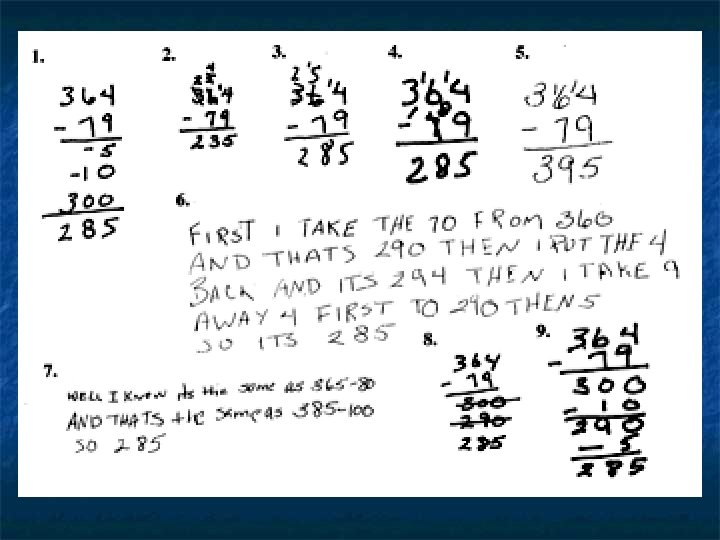 1.
364
- 79
-5
-10
300
285
2.
364
- 79
235
3.
2 5
364
- 79
285
4.
364
- 79
285
5.
364
- 79
395
6.
FIRST I TAKE THE 70 FROM 360
AND THATS 290 THEN I PUT THE 4
BACK AND ITS 294 THEN I TAKE 9
AWAY 4 FIRST TO 290 THEN 5
SO ITS 285
7.
WELL I KNEW its the same as 365-80
AND THATS the same as 385-100
SO 285
8.
364
- 79
300
290
285
9.
364
- 79
300
- 10
290
- 5
285